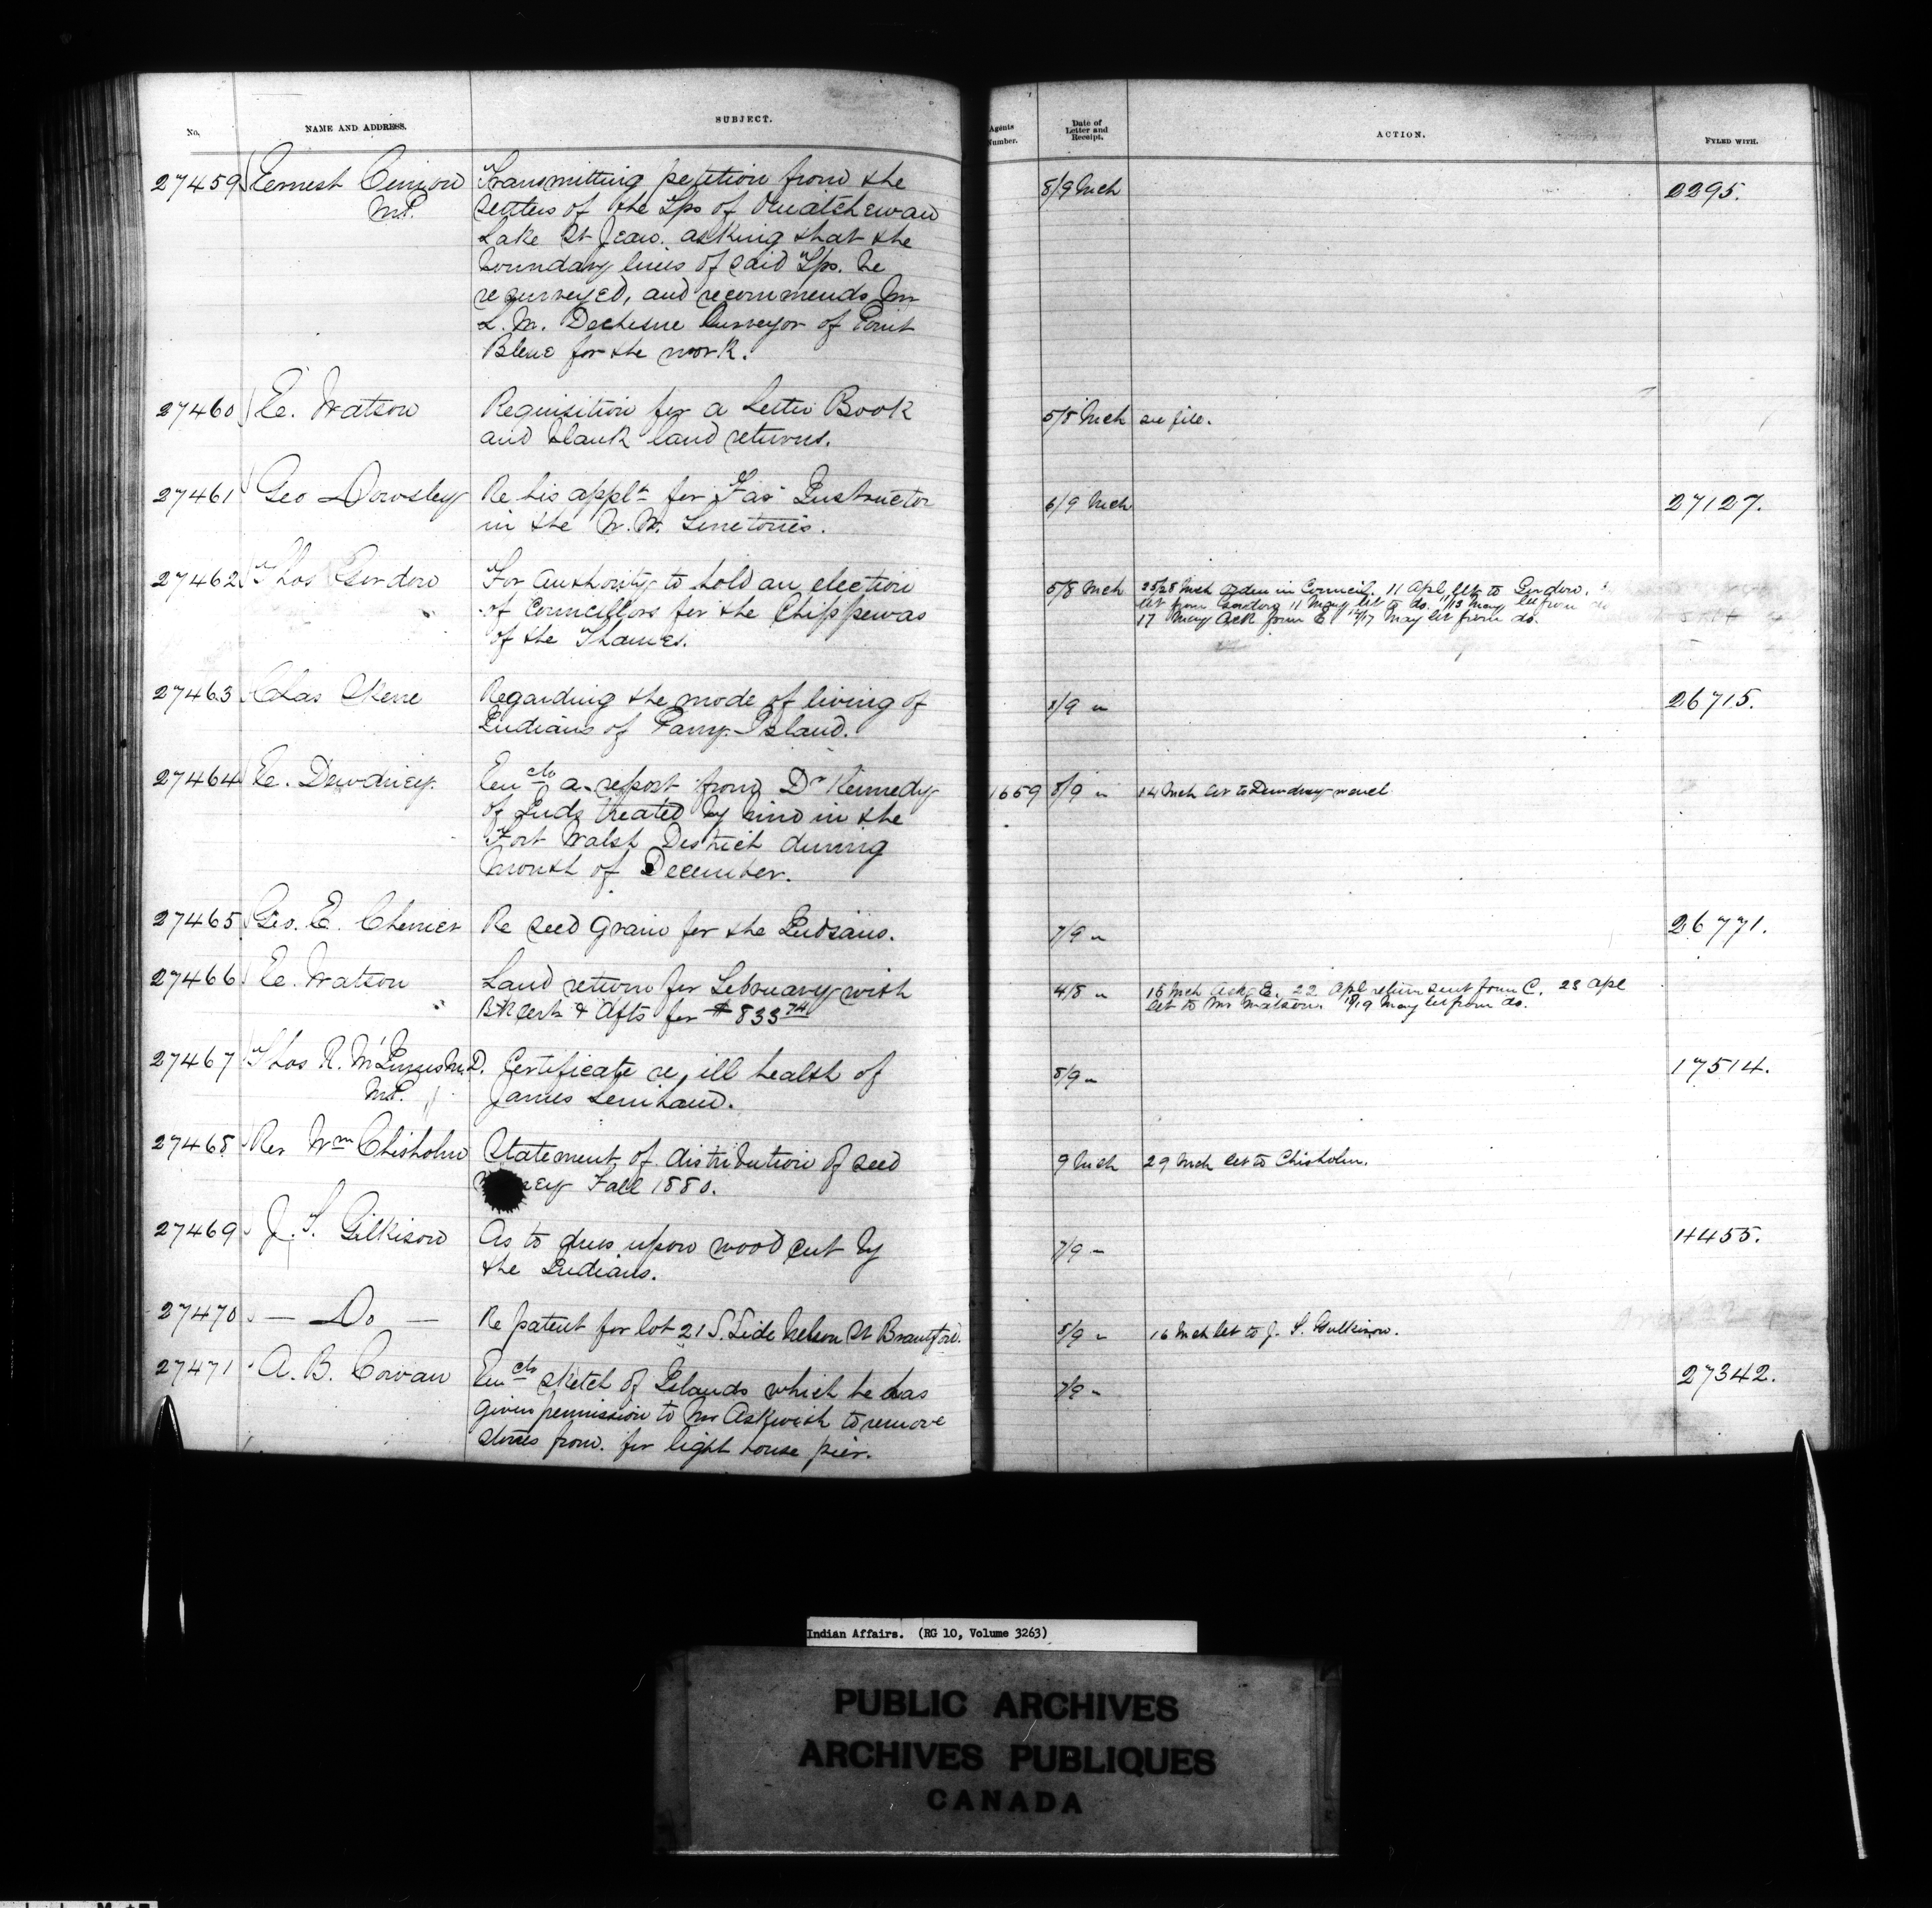 No.
NAME AND ADDRESS.
SUBJECT.
Agents Number.
Date of Letter and Receipt.
ACTION.
FYLED WITH.
27459 Ernest Cimon Transmitting petition from the 8/9 Mch 2295.
M.P. settlers of the Tps of Ouiatchewan
Lake St Jean. asking that the
boundary lines of said Tps. be
resurveyed, and recommends Mr
L. M. Dechesne Surveyor of Point
Bleue for the work.
27460 E. Watson Requisition for a Letter Book 5/8 Mch see file.
and blank land returns.
27461 Geo Dowsley Re his applt for Far Instructor 6/9 Mch 27127.
in the N. W. Territories.
27462 Thos Gordon For Authority to hold an election 5/8 Mch 25/28 Mch Order in Council. 11 Apl let to Gordon.
of Councillors for the Chippewas let from Gordon 11 May let to do. 11/13 May let from do
of the Thames. 17 May Ack from E 12/17 May let from do.
27463 Chas Skene Regarding the mode of living of 8/9 " 26715.
Indians of Parry Island.
27464 E. Dewdney. Encls a report from Dr Kennedy 1659 8/9 " 14 Mch let to Dewdney
of Inds treated by him in the
Fort Walsh District during
month of December.
27465 Geo. E. Cherrier Re seed grain for the Indians. 7/9 " 26771.
27466 E. Watson Land return for February with 4/8 " 15 Mch Ack E. 22 Apl return sent from C. 23 Apl
Bk certs & Afts for $833 74 let to Mr Watson. 18/19 May let from do.
27467 Thos R. McInnes M.D. Certificate re, ill health of 8/9 " 17514.
M.P. James Lenihan.
27468 Rev Wm Chisholm Statement of distribution of seed 9 Mch 29 Mch let to Chisholm.
Fall 1880.
27469 J. T. Gilkison As to dues upon wood cut by 7/9 " 11455.
the Indians.
27470 — Do — Re patent for lot 21 S. Side Nelson St Brantford. 8/9 " 16 Mch let to J. T. Gilkison.
27471 A. B. Cowan Encls sketch of Islands which he has 7/9 " 27342.
given permission to Mr Askwith to remove
stones from. for light house pier.
Indian Affairs. (RG 10, Volume 3263)
PUBLIC ARCHIVES
ARCHIVES PUBLIQUES
CANADA